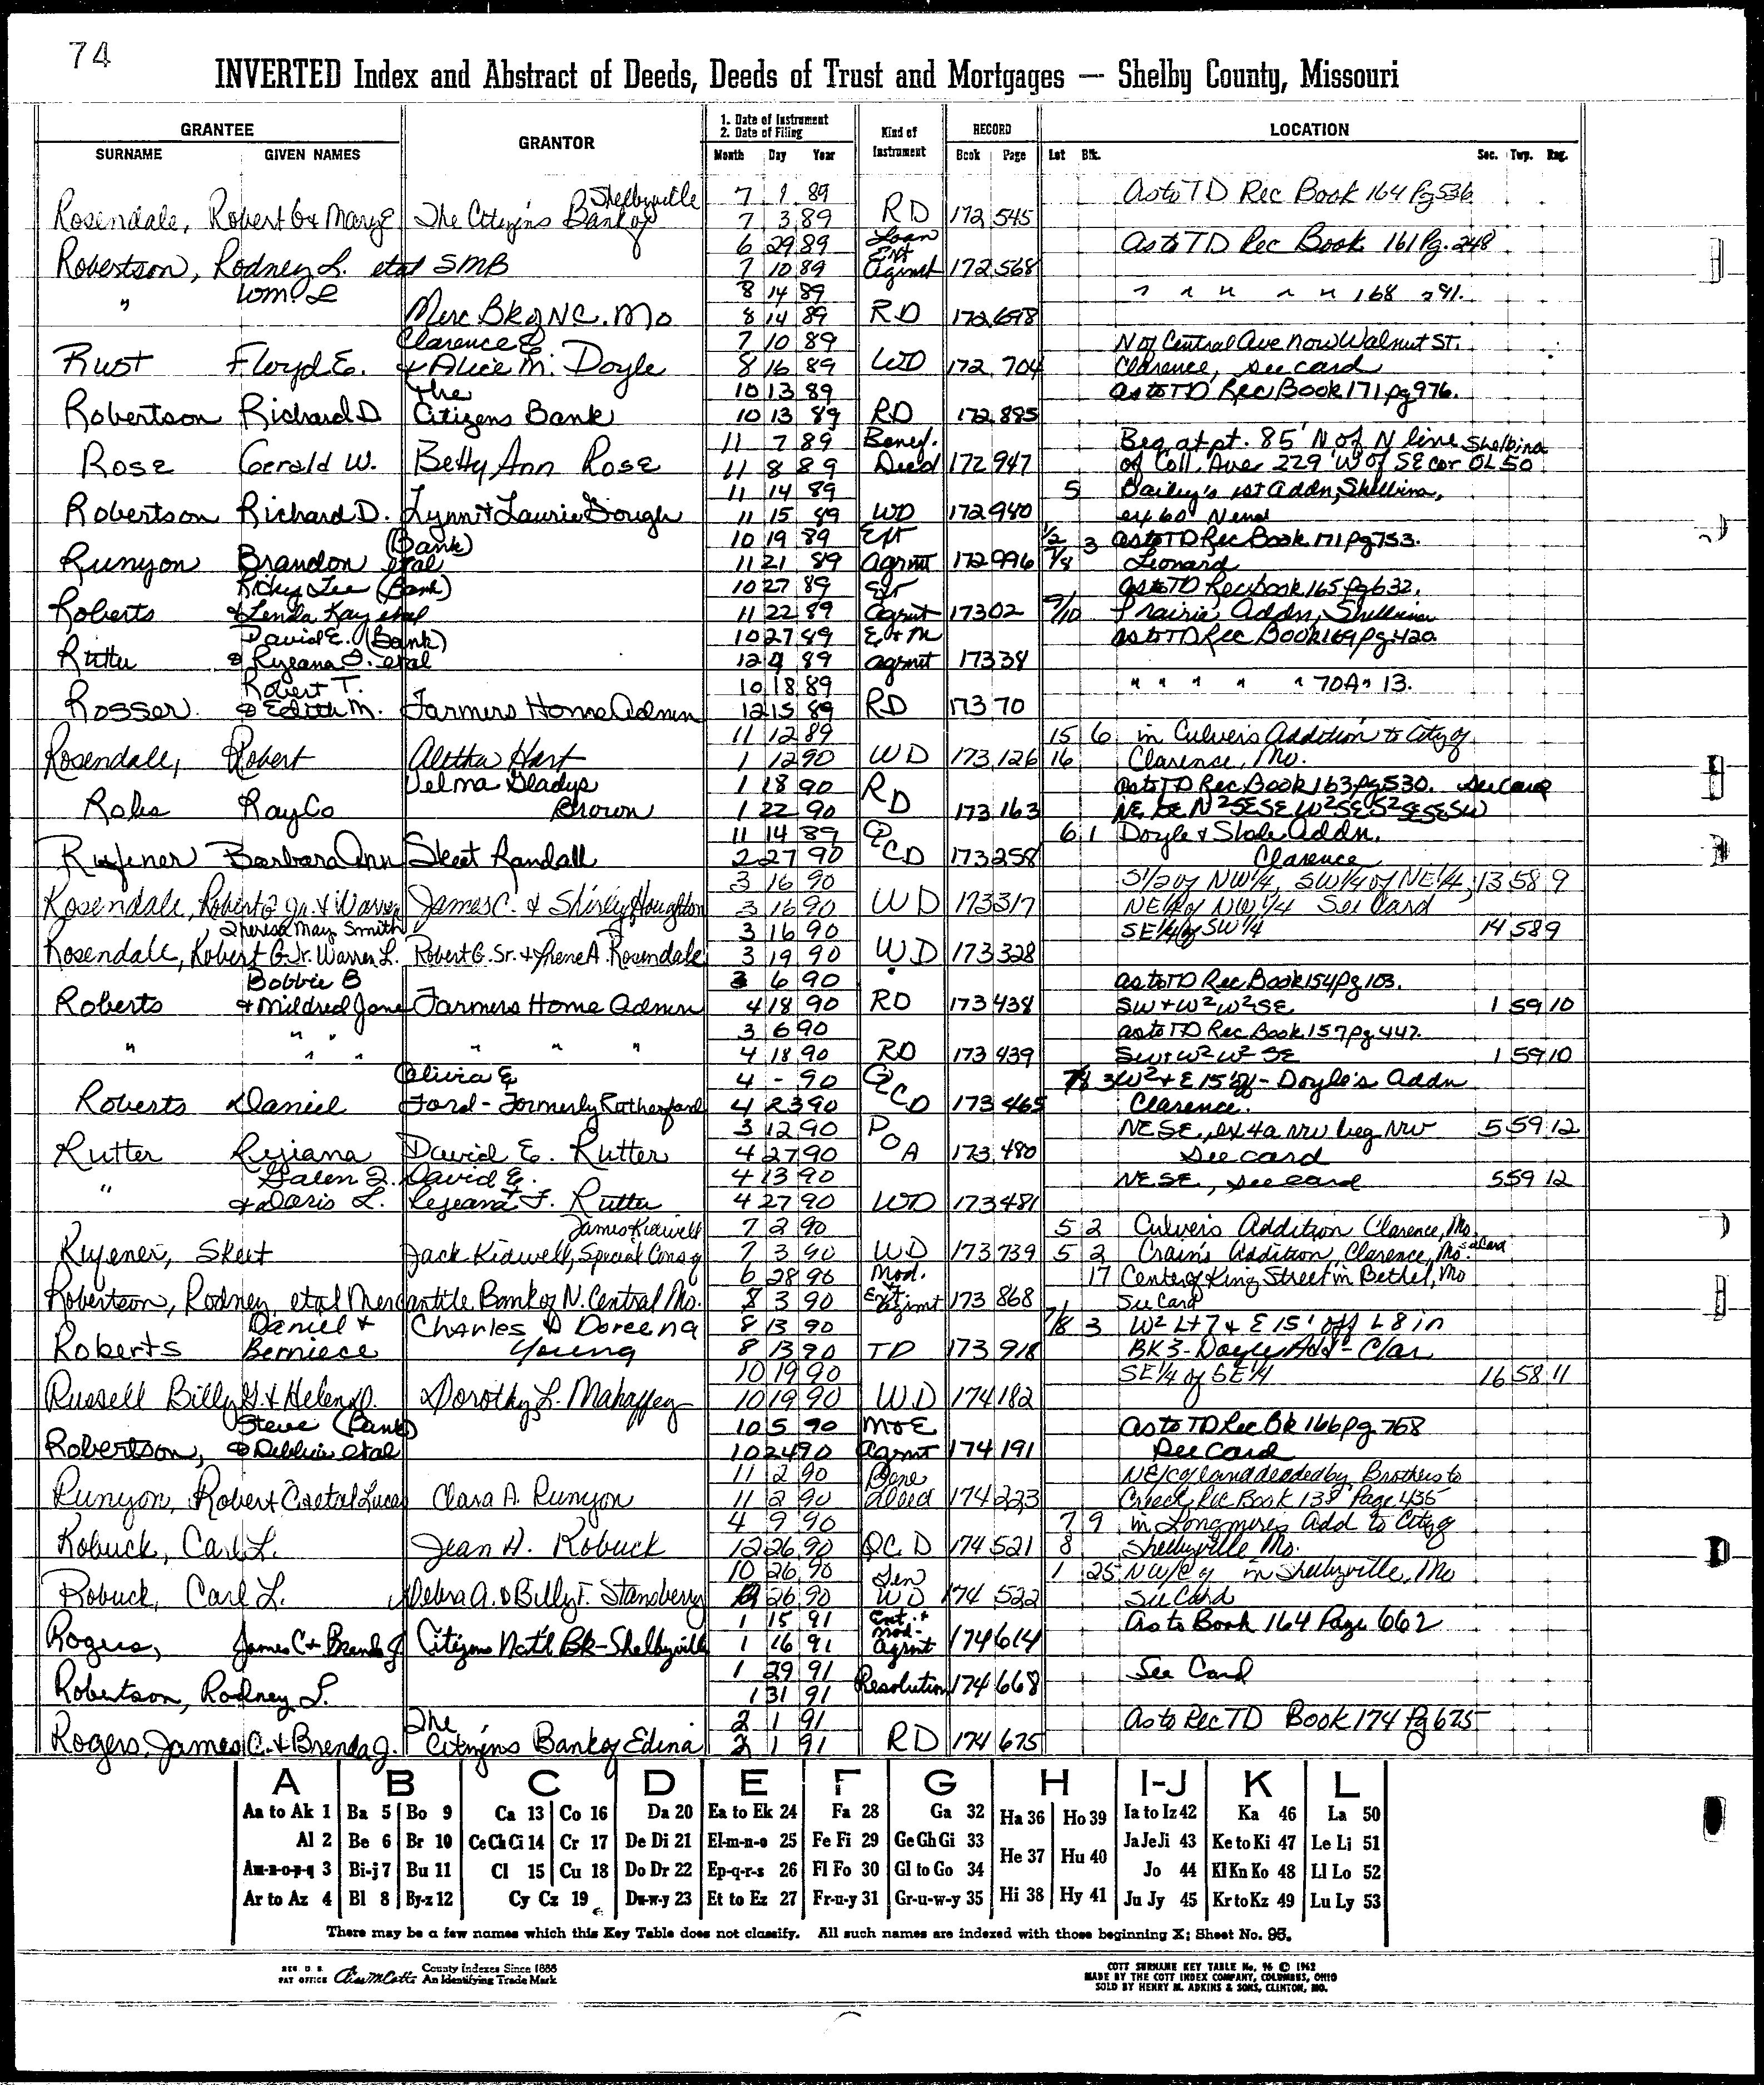 74
INVERTED Index and Abstract of Deeds, Deeds of Trust and Mortgages — Shelby County, Missouri
GRANTEE GRANTOR 1. Date of Instrument 2. Date of Filing Kind of Instrument RECORD LOCATION
SURNAME GIVEN NAMES Month Day Year Book Page Lot Blk. Sec. Twp. Rng.
Shelbyville 7 1 89 As to TD Rec Book 164 Pg 536
Rosendale, Robert G & Mary E The Citizens Bank of 7 3 89 RD 172 545
6 29 89 Loan Ext As to TD Rec Book 161 Pg. 248
Robertson, Rodney L. etal SMB 7 10 89 Agmet 172 568
" Wm L 8 14 89 " " " " " 168 " 91.
Merc Bk of N C. Mo 8 14 89 RD 172 698
Clarence E 7 10 89 N of Central Ave now Walnut St.
Rust Floyd E. & Alice M. Doyle 8 16 89 WD 172 704 Clarence, see card
The 10 13 89 as to TD Rec Book 171 pg 976.
Robertson Richard D Citizens Bank 10 13 89 RD 172 885
11 7 89 Benef. Beg at pt. 85' N of N line Shelbina
Rose Gerald W. Betty Ann Rose 11 8 89 Deed 172 947 of Coll. Ave 229' W of SE cor OL 50
11 14 89 5 Bailey's 1st Addn, Shelbina,
Robertson Richard D. Lynn & Laurie Gough 11 15 89 WD 172 980 ex 60' N end
(Bank) 10 19 89 Ext 1/2 3 as to TD Rec Book 171 pg 753.
Runyon Brandon etal 11 21 89 agrmt 172 996 7/8 Leonard
Ricky Lee (Bank) 10 27 89 Ext as to TD Rec book 165 pg 632.
Roberts & Linda Kay etal 11 22 89 agrmt 173 02 9/10 Prairie Addn, Shelbina
David E. (Bank) 10 27 89 E & M as to TD Rec Book 169 pg 420.
Rutter & Rejeana F. etal 12 4 89 agrmt 173 38
Robert T. 10 18 89 " " " " " 70A " 13.
Rosser & Edith M. Farmers Home Admn 12 15 89 RD 173 70
11 12 89 15 6 in Culver's Addition to City of
Rosendale, Robert Aletha Hart 1 12 90 WD 173 126 16 Clarence, Mo.
Velma Gladys 1 18 90 as to TD Rec Book 163 pg 530. see card
RayCo Brown 1 22 90 RD 173 163 NE SE N2SESE W2SE S2SESESW
11 14 89 6 1 Doyle & Slade Addn.
Barbara Ann Skeet Randall 2 27 90 QCD 173 258 Clarence
3 16 90 S1/2 of NW1/4, SW1/4 of NE1/4, 13 58 9
Rosendale, Robert G Jr. & Warren James C. & Shirley Houghton 3 16 90 WD 173 317 NE1/4 of NW1/4 See Card
Theresa May Smith 3 16 90 SE1/4 of SW1/4 14 58 9
Rosendale, Robert G. Jr. Warren L. Robert G. Sr. & Irene A. Rosendale 3 19 90 WD 173 328
Bobbie B 3 6 90 as to TD Rec Book 154 pg 103.
Roberts & Mildred Jane Farmers Home Admn 4 18 90 RD 173 438 SW & W2W2SE 1 59 10
" " 3 6 90 as to TD Rec Book 157 pg 447.
" " " " " " 4 18 90 RD 173 439 SW & W2 W2 SE 1 59 10
Olivia E 4 - 90 7/8 3 W2 & E 15' of - Doyle's Addn
Roberts Daniel Ford - Formerly Rutherford 4 23 90 QCD 173 465 Clarence.
3 12 90 NE SE, ex 4a NW beg NW 5 59 12
Rutter Rejiana David E. Rutter 4 27 90 POA 173 480 See card
Galen L. David E. 4 13 90 NE SE, see card 5 59 12
" & Doris L. & Rejeana F. Rutter 4 27 90 WD 173 481
James Kidwell 7 2 90 5 2 Culver's Addition Clarence, Mo
Skeet Jack Kidwell, Special Cons of 7 3 90 WD 173 739 5 2 Crain's Addition, Clarence, Mo. See Card
6 28 90 Mod. 17 Center of King Street in Bethel, Mo
Robertson, Rodney etal Mercantile Bank of N. Central Mo. 8 3 90 Ext. agrmt 173 868 See Card
Daniel & Charles D Doreena 8 13 90 7/8 3 W2 Lt 7 & E 15' off L 8 in
Roberts Berniece Young 8 13 90 TD 173 918 BK 3 - Doyle Add - Clar
10 19 90 SE1/4 of SE1/4 16 58 11
Russell Billy G. & Helen D. Dorothy L. Mahaffey 10 19 90 WD 174 182
Steve (Bank) 10 5 90 M & E As to TD Rec Bk 166 pg 768
Robertson, & Debbie etal 10 24 90 agrmt 174 191 See Card
11 2 90 Bene NE/c of land deeded by Brothers to
Runyon, Robert C etal Lucas Clara A. Runyon 11 2 90 deed 174 223 Creech Rec Book 138 Page 435
4 9 90 7 9 in Longmire's Add to City of
Robuck, Carl L. Jean H. Robuck 12 26 90 QCD 174 521 8 Shelbyville Mo.
10 26 90 Gen 1 25 NW/c of in Shelbyville, Mo
Robuck, Carl L. Debra A. & Billy F. Stansberry 12 26 90 WD 174 522 See Card
1 15 91 Ext. & As to Book 164 Page 662
Rogers, James C & Brenda J Citizens Nat'l Bk - Shelbyville 1 16 91 mod. agrmt 174 614
1 29 91 See Card
Robertson, Rodney L. 1 31 91 Resolution 174 668
The 2 1 91 As to Rec TD Book 174 Pg 675
Rogers, James C. & Brenda J. Citizens Bank of Edina 2 1 91 RD 174 675
A B C D E F G H I-J K L
Aa to Ak 1 Ba 5 Bo 9 Ca 13 Co 16 Da 20 Ea to Ek 24 Fa 28 Ga 32 Ha 36 Ho 39 Ia to Iz 42 Ka 46 La 50
Al 2 Be 6 Br 10 Ce Ch Ci 14 Cr 17 De Di 21 El-m-n-o 25 Fe Fi 29 Ge Gh Gi 33 He 37 Hu 40 Ja Je Ji 43 Ke to Ki 47 Le Li 51
Am-n-o-p-q 3 Bi-j 7 Bu 11 Cl 15 Cu 18 Do Dr 22 Ep-q-r-s 26 Fl Fo 30 Gl to Go 34 Jo 44 Kl Kn Ko 48 Ll Lo 52
Ar to Az 4 Bl 8 By-z 12 Cy Cz 19 Du-w-y 23 Et to Ez 27 Fr-u-y 31 Gr-u-w-y 35 Hi 38 Hy 41 Ju Jy 45 Kr to Kz 49 Lu Ly 53
There may be a few names which this Key Table does not classify. All such names are indexed with those beginning X; Sheet No. 95.
REG. U. S. PAT OFFICE County Indexes Since 1888 An Identifying Trade Mark
COTT SURNAME KEY TABLE No. 96 © 1962
MADE BY THE COTT INDEX COMPANY, COLUMBUS, OHIO
SOLD BY HENRY M. ADKINS & SONS, CLINTON, MO.